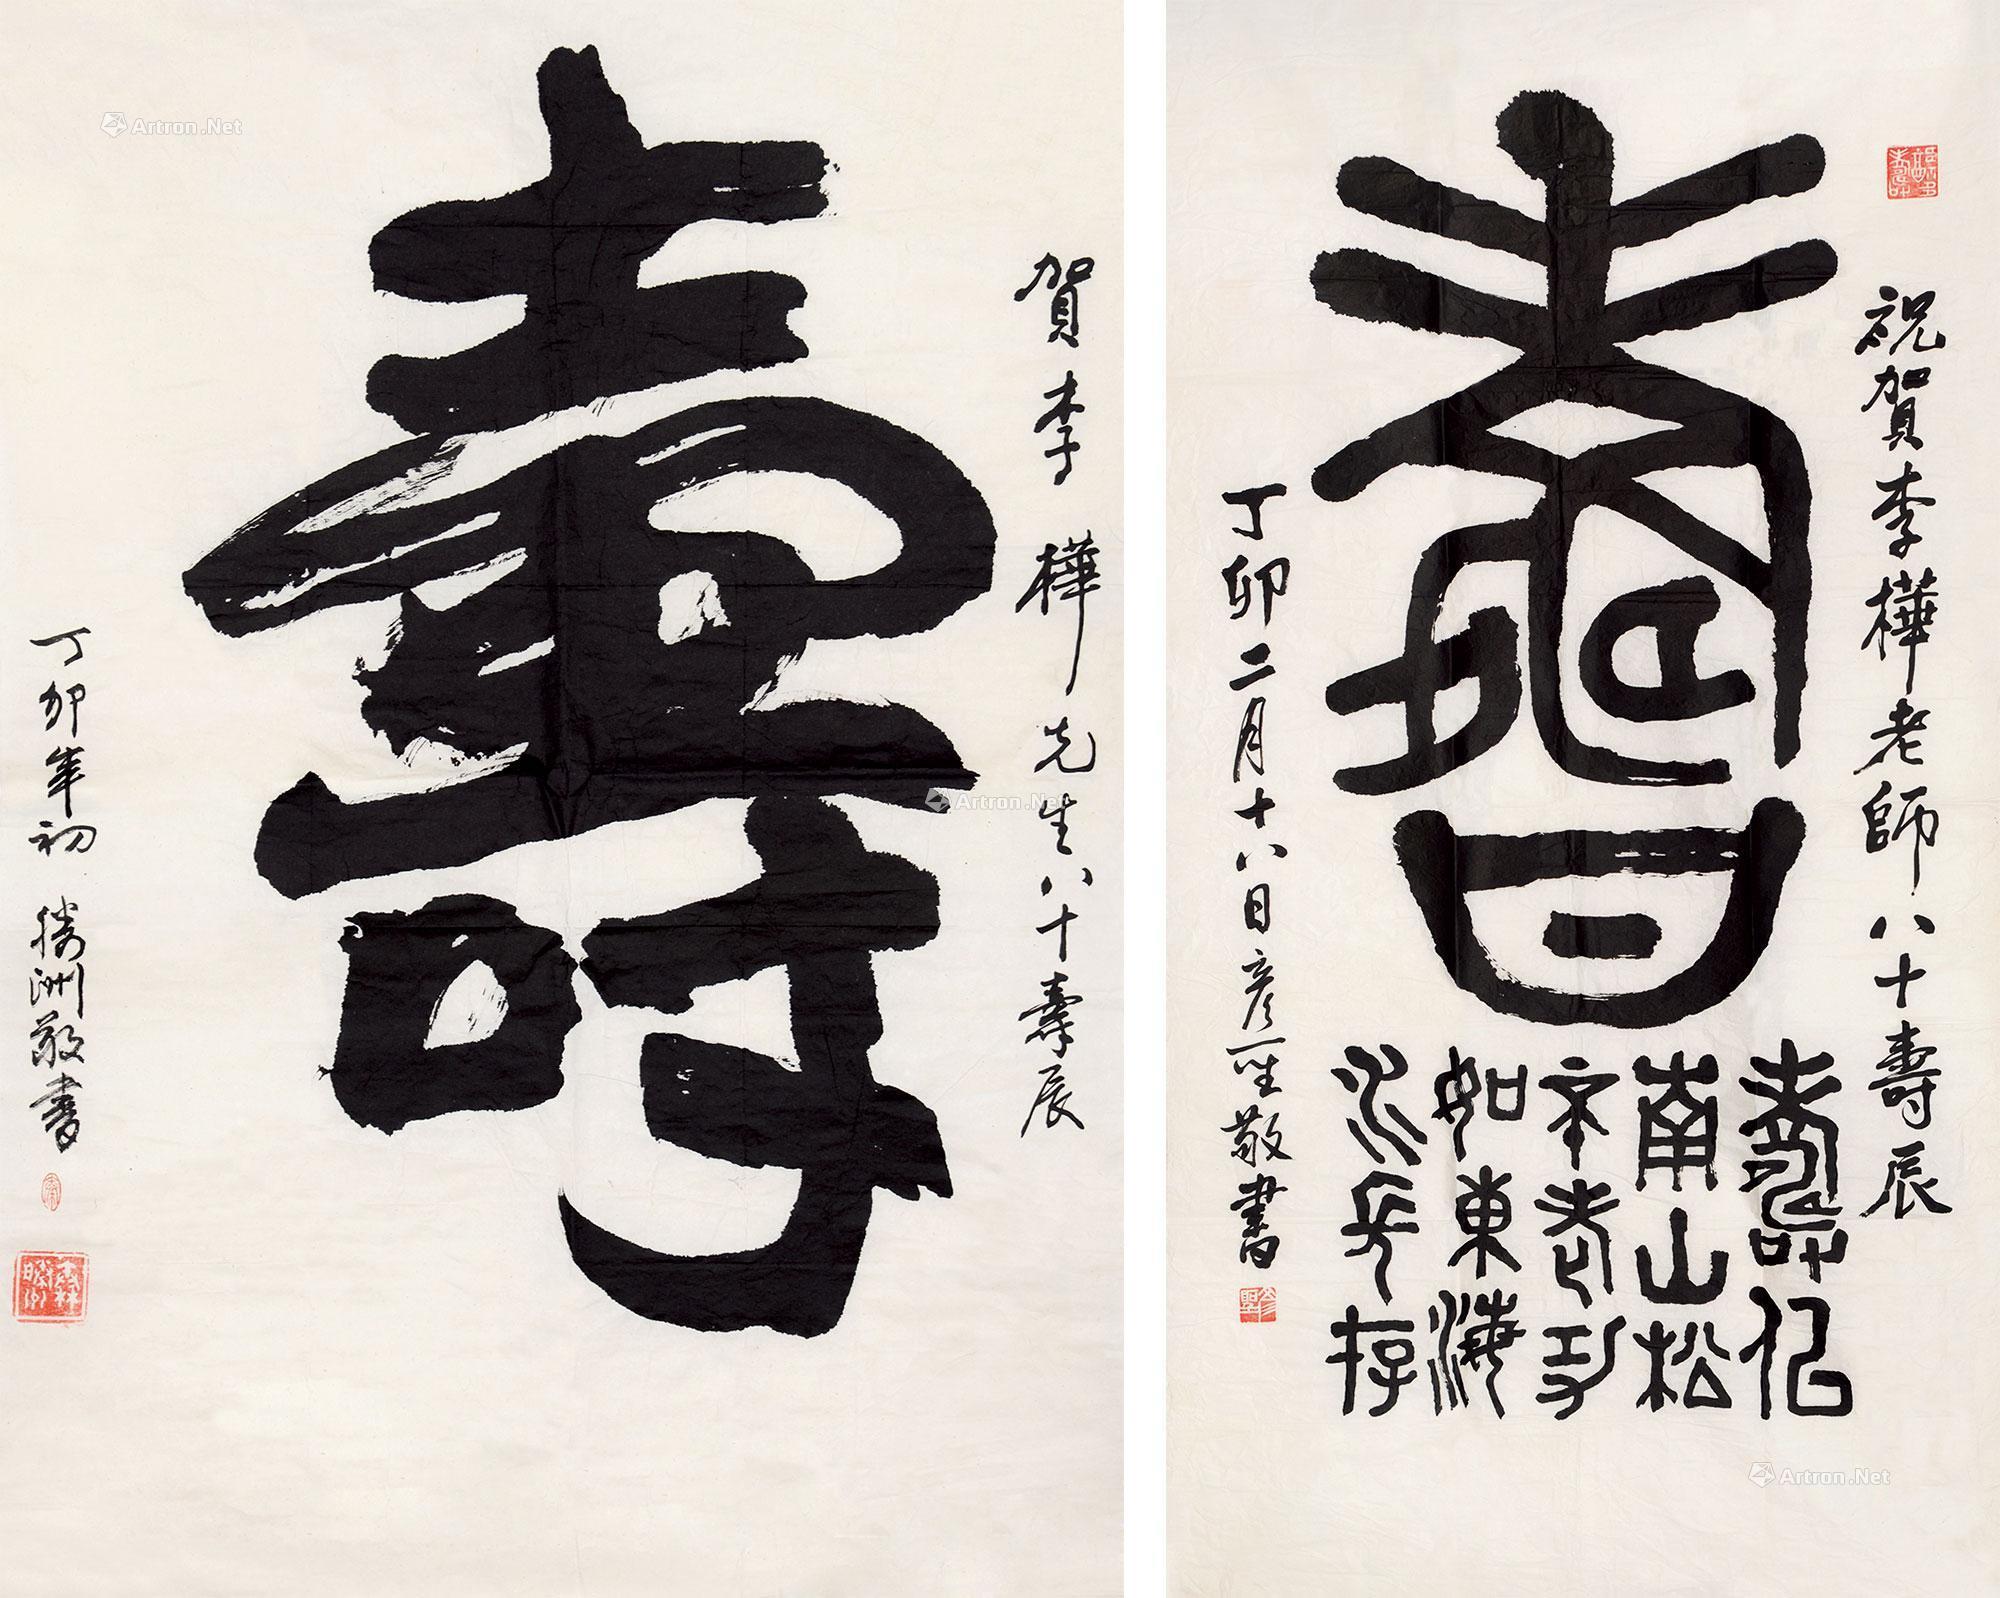 賀李樺先生八十壽辰
壽
丁卯年初 勝洲敬書
祝賀李樺老師八十壽辰
壽
壽命似
南山松
不老功
如東海
水長存
丁卯二月十八日彦聖敬書
Artron.Net
Artron.Net
Artron.Net